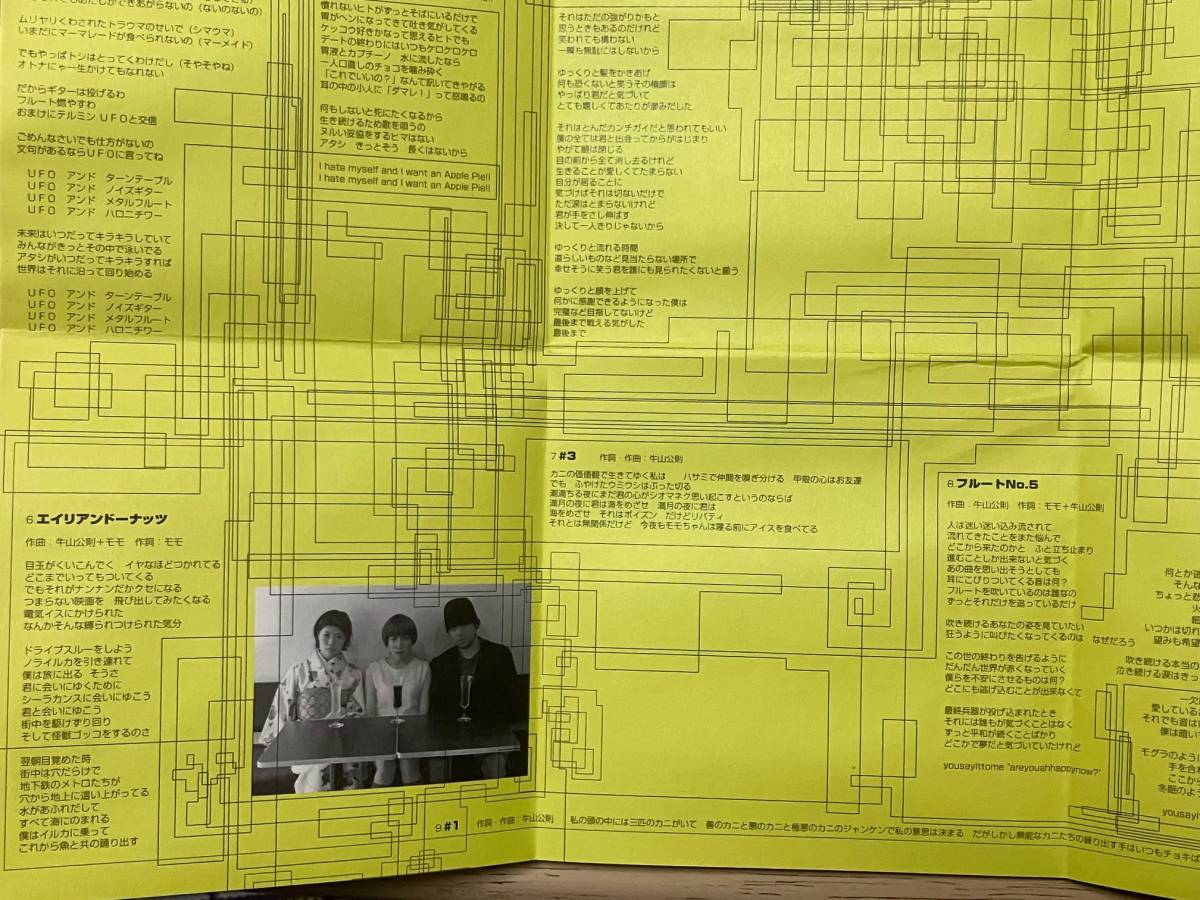 ムリヤリくわされたトラウマのせいで（シマウマ）
いまだにマーマレードが食べられないの（マーメイド）
でもやっぱトシはとってくわけだし（そやそやね）
オトナにゃ一生かけてもなれない
だからギターは投げるわ
フルート燃やすわ
おまけにテルミン ＵＦＯと交信
ごめんなさいでも仕方がないの
文句があるならＵＦＯに言ってね
ＵＦＯ　アンド　ターンテーブル
ＵＦＯ　アンド　ノイズギター
ＵＦＯ　アンド　メタルフルート
ＵＦＯ　アンド　ハロニチワー
未来はいつだってキラキラしていて
みんながきっとその中で泳いでる
アタシがいつだってキラキラすれば
世界はそれに沿って回り始める
ＵＦＯ　アンド　ターンテーブル
ＵＦＯ　アンド　ノイズギター
ＵＦＯ　アンド　メタルフルート
ＵＦＯ　アンド　ハロニチワー
慣れないヒトがずっとそばにいるだけで
胃がヘンになってきて吐き気がしてくる
ケッコウ好きかなって思えるヒトでも
デートの終わりにはいつもケロケロケロ
胃液とカプチーノ　水に流したなら
一人口直しのチョコを噛み砕く
「これでいいの？」なんて訊いてきやがる
耳の中の小人に「ダマレ！」って怒鳴るの
何もしないと死にたくなるから
生き続けるため歌を唄うの
ヌルい妥協をするヒマはない
アタシ　きっとそう　長くはないから
I hate myself and I want an Apple Pie!!
I hate myself and I want an Apple Pie!!
それはただの強がりかもと
思うときもあるのだけれど
笑われても構わない
一瞬も無駄にはしないから
ゆっくりと髪をかきあげ
何も恐くないと笑うその横顔は
やっぱり君だと気づいて
とても嬉しくてあたりが滲みだした
それはとんだカンチガイだと思われてもいい
僕の全ては君と出会ってからがはじまり
やがて瞼は閉じる
目の前から全て消し去るけれど
生きることが愛しくてたまらない
自分が居ることに
気づけばそれは切ないだけで
ただ涙はとまらないけれど
君が手をさし伸ばす
決して一人きりじゃないから
ゆっくりと流れる時間
道らしいものなど見当たらない場所で
幸せそうに笑う君を誰にも見られたくないと願う
ゆっくりと顔を上げて
何かに感謝できるようになった僕は
完璧など目指してないけど
最後まで戦える気がした
最後まで
6 エイリアンドーナッツ
作曲：牛山公則＋モモ　作詞：モモ
目玉がくいこんでく　イヤなほどつかれてる
どこまでいってもついてくる
でもそれがナンナンだかクセになる
つまらない映画を　飛び出してみたくなる
電気イスにかけられた
なんかそんな縛られつけられた気分
ドライブスルーをしよう
ノライルカを引き連れて
僕は旅に出る　そうさ
君に会いにゆくために
シーラカンスに会いにゆこう
君と会いにゆこう
街中を駆けずり回り
そして怪獣ゴッコをするのさ
翌朝目覚めた時
街中は穴だらけで
地下鉄のメトロたちが
穴から地上に這い上がってる
水があふれだして
すべて海にのまれる
僕はイルカに乗って
これから魚と共の踊り出す
7 #3　作詞・作曲：牛山公則
カニの価値観で生きてゆく私は　ハサミで仲間を嗅ぎ分ける　甲殻の心はお友達
でも　ふやけたウミウシはぶった切る
潮満ちる夜にまだ君の心がシオマネク思い起こすというのならば
満月の夜に君は海をめざせ　満月の夜に君は
海をめざせ　それはポイズン　だけどリバティ
それとは無関係だけど　今夜もモモちゃんは寝る前にアイスを食べてる
8.フルートNo.5
作曲：牛山公則　作詞：モモ＋牛山公則
人は迷い迷い込み流されて
流れてきたことをまた悩んで
どこから来たのかと　ふと立ち止まり
進むことしか出来ないと気づく
あの曲を思い出そうとしても
耳にこびりついてくる音は何？
フルートを吹いているのは誰なの
ずっとそれだけを追っているだけ
吹き続けるあなたの姿を見ていたい
狂うように叫びたくなってくるのは　なぜだろう
この世の終わりを告げるように
だんだん世界が赤くなっていく
僕らを不安にさせるものは何？
どこにも逃げ込むことが出来なくて
最終兵器が投げ込まれたとき
それには誰もが気づくことはなく
ずっと平和が続くことばかり
どこかで夢だと気づいていたけれど
yousayittome "areyouahhappynow?"
何とか
そんな
ちょっと
火
いつかは切れ
望みも希望
吹き続ける本当の
泣き続ける涙はきっ
愛している
それでも音は
僕は暗い
モグラのように
手を合わ
ここから
冬眠のよう
yousayit
9 #1　作詞・作曲：牛山公則　私の頭の中には三匹のカニがいて　善のカニと悪のカニと極悪のカニのジャンケンで私の意思は決まる　だがしかし無能なカニたちの繰り出す手はいつもチョキば